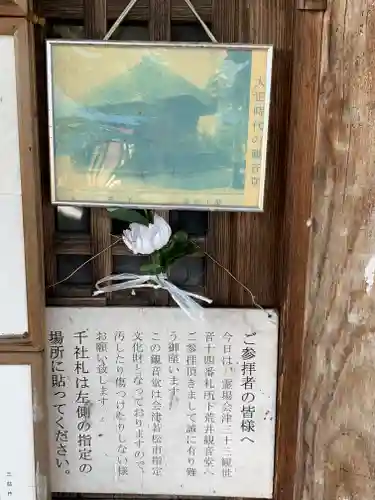 大正時代の観音堂
ご参拝者の皆様へ
今日は、霊場会津三十三観世
音十四番札所下荒井観音堂へ
ご参拝頂きまして誠に有り難
う御座います。
この観音堂は会津若松市指定
文化財となっておりますので、
汚したり傷つけたりしない様
お願い致します
千社札は左側の指定の
場所に貼ってください。